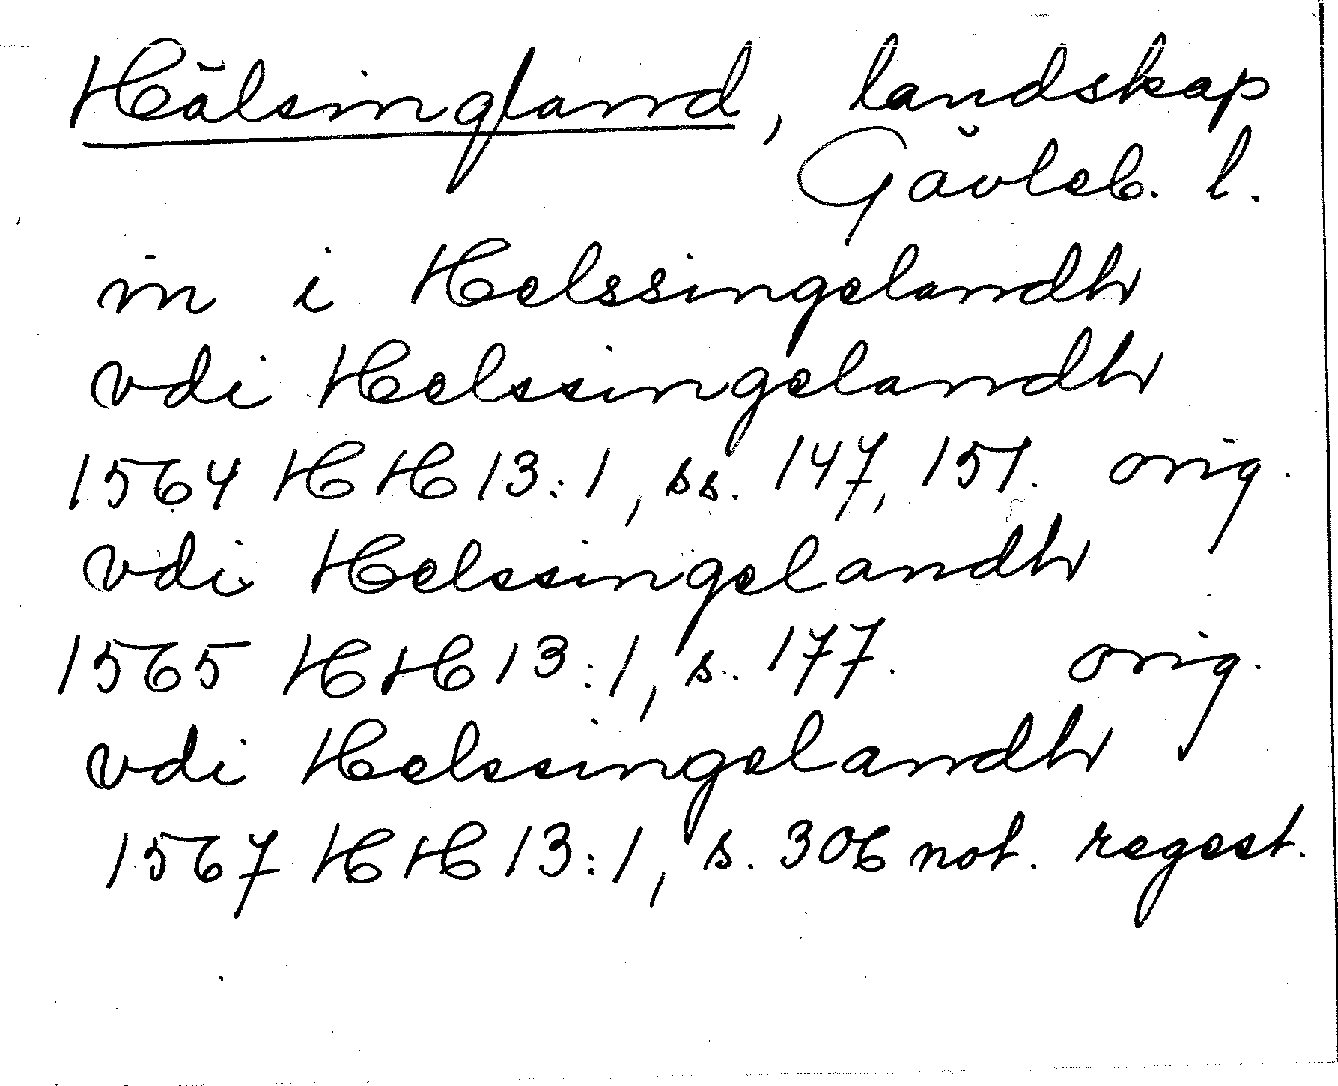 Hälsingland, landskap
Gävleb. l.
in i Helssingelandh
vdi Helssingelandh
1564 HH 13:1, ss. 147, 151. orig.
vdi Helssingelandh
1565 HH 13:1, s. 177. orig.
vdi Helssingelandh
1567 HH 13:1, s. 306 not. regest.